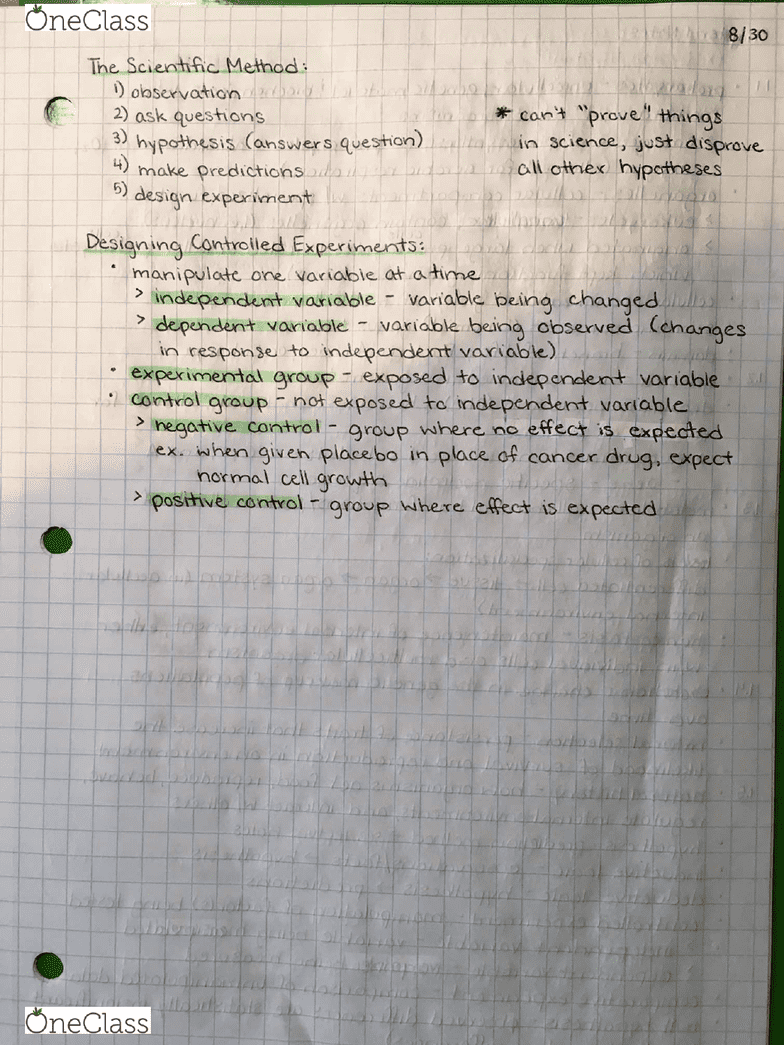 OneClass
8/30
The Scientific Method:
1) observation
2) ask questions
3) hypothesis (answers question)
4) make predictions
5) design experiment
* can't "prove" things
in science, just disprove
all other hypotheses
Designing Controlled Experiments:
• manipulate one variable at a time
> independent variable - variable being changed
> dependent variable - variable being observed (changes
in response to independent variable)
• experimental group - exposed to independent variable
• control group - not exposed to independent variable
> negative control - group where no effect is expected
ex. when given placebo in place of cancer drug, expect
normal cell growth
> positive control - group where effect is expected
OneClass